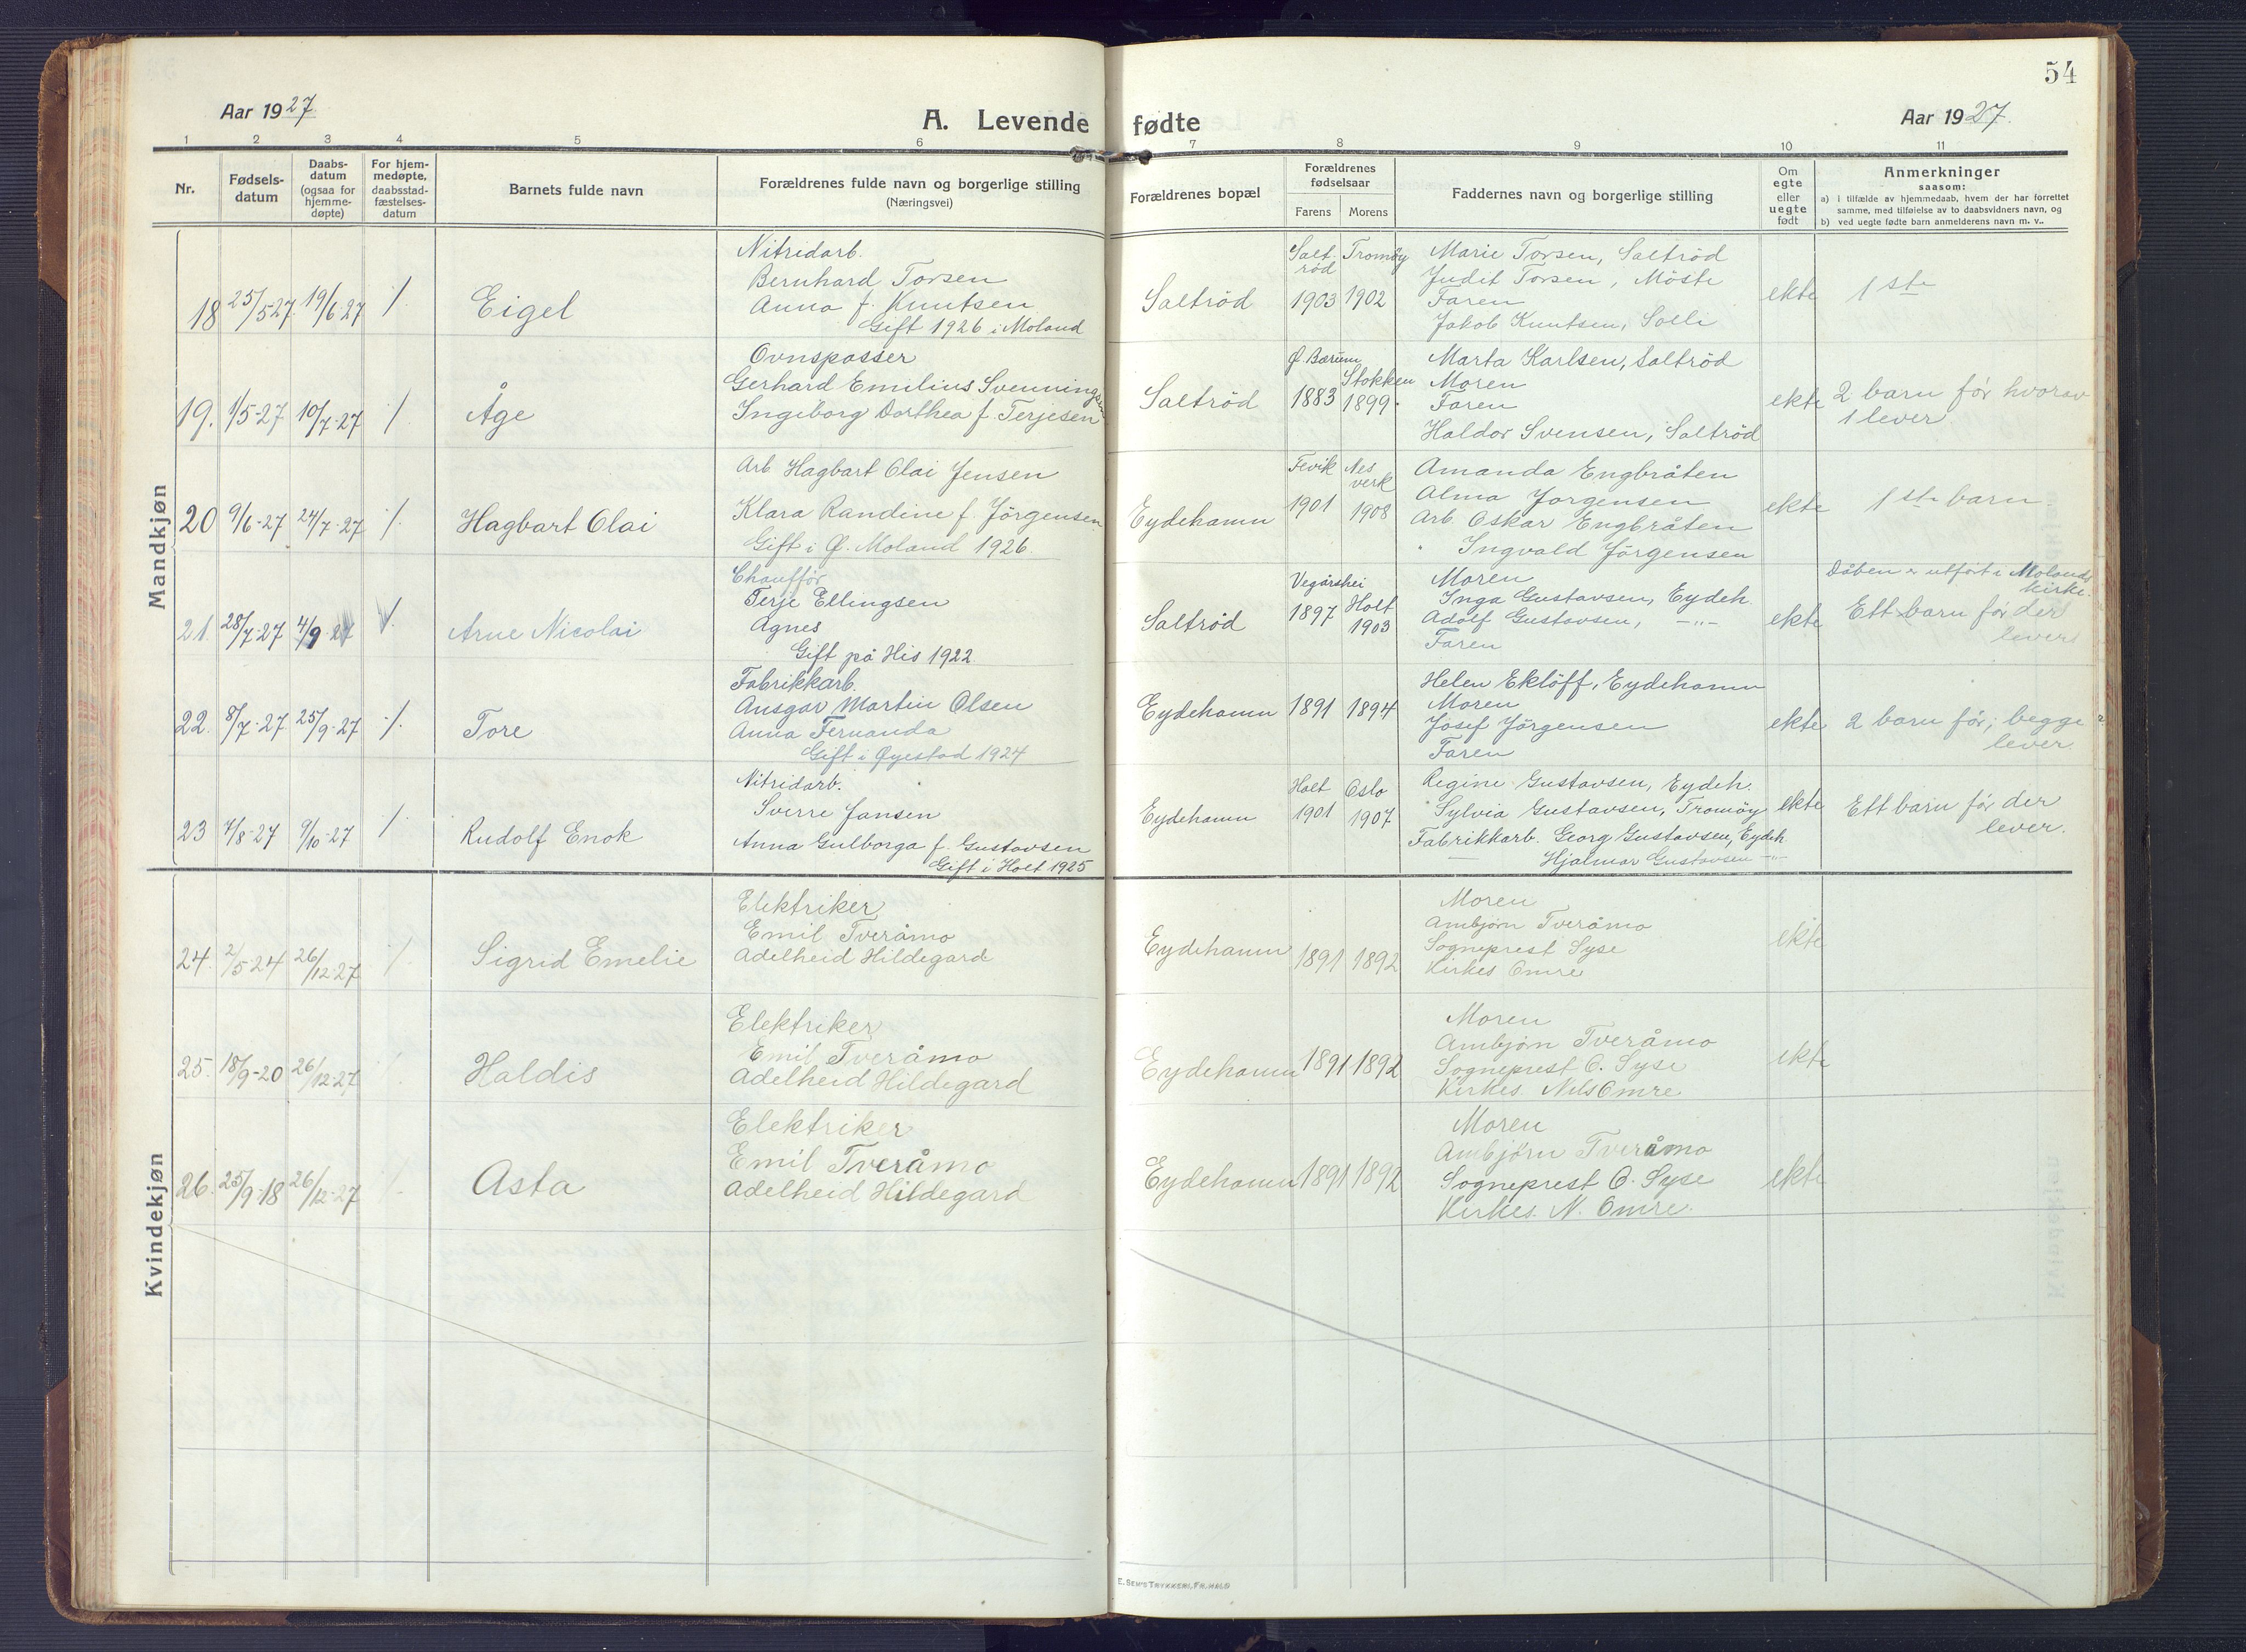 54
Aar 1927
A. Levende fødte
Aar 1927.
1 2 3 4 5 6 7 8 9 10 11
Nr.
Fødsels-
datum
Daabs-
datum
(ogsaa for
hjemme-
døpte)
For hjem-
medøpte,
daabsstad-
fæstelses-
datum
Barnets fulde navn
Forældrenes fulde navn og borgerlige stilling
(Næringsvei)
Forældrenes bopæl
Forældrenes
fødselsaar
Farens Morens
Faddernes navn og borgerlige stilling
Om
egte
eller
uegte
født
Anmerkninger
saasom:
a) i tilfælde av hjemmedaab, hvem der har forrettet
samme, med tilføielse av to daabsvidners navn, og
b) ved uegte fødte barn anmelderens navn m. v..
Mandkjøn
18 25/5-27 19/6-27 ./.
Eigel
Nitridarb.
Bernhard Torsen
Anna f. Knutsen
Gift 1926 i Moland
Saltröd
Salt-
röd
1903
Tromöy
1902
Marie Torsen, Saltröd
Judit Torsen, Möste
Faren
Jakob Knutsen, Solli
ekte
1ste
19. 1/5-27 10/7-27 ./.
Åge
Ovnspasser
Gerhard Emilius Svenningsen
Ingeborg Dorthea f. Terjesen
Saltröd
Ø. Bærum
1883
Stokken
1899.
Marta Karlsen, Saltröd
Moren
Faren
Haldor Svensen, Saltröd
ekte
2 barn før hvorav
1 lever
20 9/6-27 24/7-27 ./.
Hagbart Olai
Arb Hagbart Olai Jensen
Klara Randine f. Jörgensen
Gift i Ø. Moland 1926.
Eydehamn
Fevik
1901
Nes
verk
1908
Amanda Engbråten
Alma Jörgensen
Arb. Oskar Engbråten
" Ingvald Jörgensen
ekte
1ste barn
21. 28/7-27 4/9-27 ./.
Arne Nicolai
Chauffør
Terje Ellingsen
Agnes
Gift på His 1922
Saltröd
Vegårshei
1897
Holt
1903
Moren
Inga Gustavsen, Eydeh.
Adolf Gustavsen, -"-
Faren
ekte
Dåben er utfört i Molands
kirke.
Ett barn før der
lever
22. 8/7-27 25/9-27 ./.
Tore
Fabrikkarb.
Ansgar Martin Olsen
Anna Fernanda
Gift i Øyestad 1924
Eydehamn
1891 1894
Helen Eklöff, Eydehamn
Moren
Josef Jörgensen
Faren
ekte
2 barn før; begge
lever
23 7/8-27 9/10-27 ./.
Rudolf Enok
Nitridarb.
Sverre Jansen
Anna Gulborga f. Gustavsen
Gift i Holt 1925
Eydehamn
Holt
1901
Oslo
1907
Regine Gustavsen, Eydeh.
Sylvia Gustavsen, Tromöy
Fabrikkarb. Georg Gustavsen, Eydeh.
— Hjalmar Gustavsen -"-
ekte
Ett barn før der
lever.
Kvindekjøn
24. 2/5-24 26/12-27 ./.
Sigrid Emelie
Elektriker
Emil Tveråmo
Adelheid Hildegard
Eydehamn
1891 1892
Moren
Ambjørn Tveråmo
Sogneprest Syse
Kirkes Omre
ekte
25. 18/9-20 26/12-27 ./.
Haldis
Elektriker
Emil Tveråmo
Adelheid Hildegard
Eydehamn
1891 1892
Moren
Ambjørn Tveråmo
Sogneprest O. Syse
Kirkes Nils Omre
ekte
26. 25/9-18 26/12-27 ./.
Asta
Elektriker
Emil Tveråmo
Adelheid Hildegard
Eydehamn
1891 1892
Moren
Ambjørn Tveråmo
Sogneprest O. Syse
Kirkes. N. Omre.
ekte
E. SEM'S TRYKKERI, FR.HALD